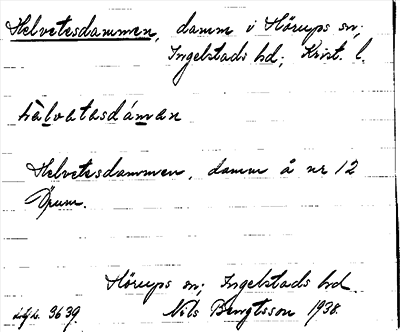 Helvetesdammen, damm i Hörups sn;
Ingelstads hd; Krist. l.
hälvatasdáman
Helvetesdammen, damm å nr 12
Öpum.
Hörups sn; Ingelstads hd.
3639. Nils Bengtsson 1938.